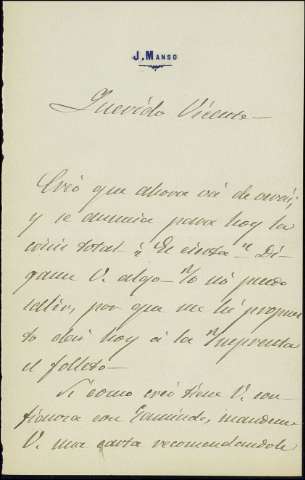 J. Manso
Querido Vicente—
Creo que ahora va de
y se anuncia para hoy la
crisis total "De esceta"— Dí-
game V. algo— Yo no puedo
salir, por que me he propues
to dar hoy á la Imprenta
el folleto—
Si como creo tiene V. con-
fianza con Gamindo, mandeme
V. una carta recomendandole